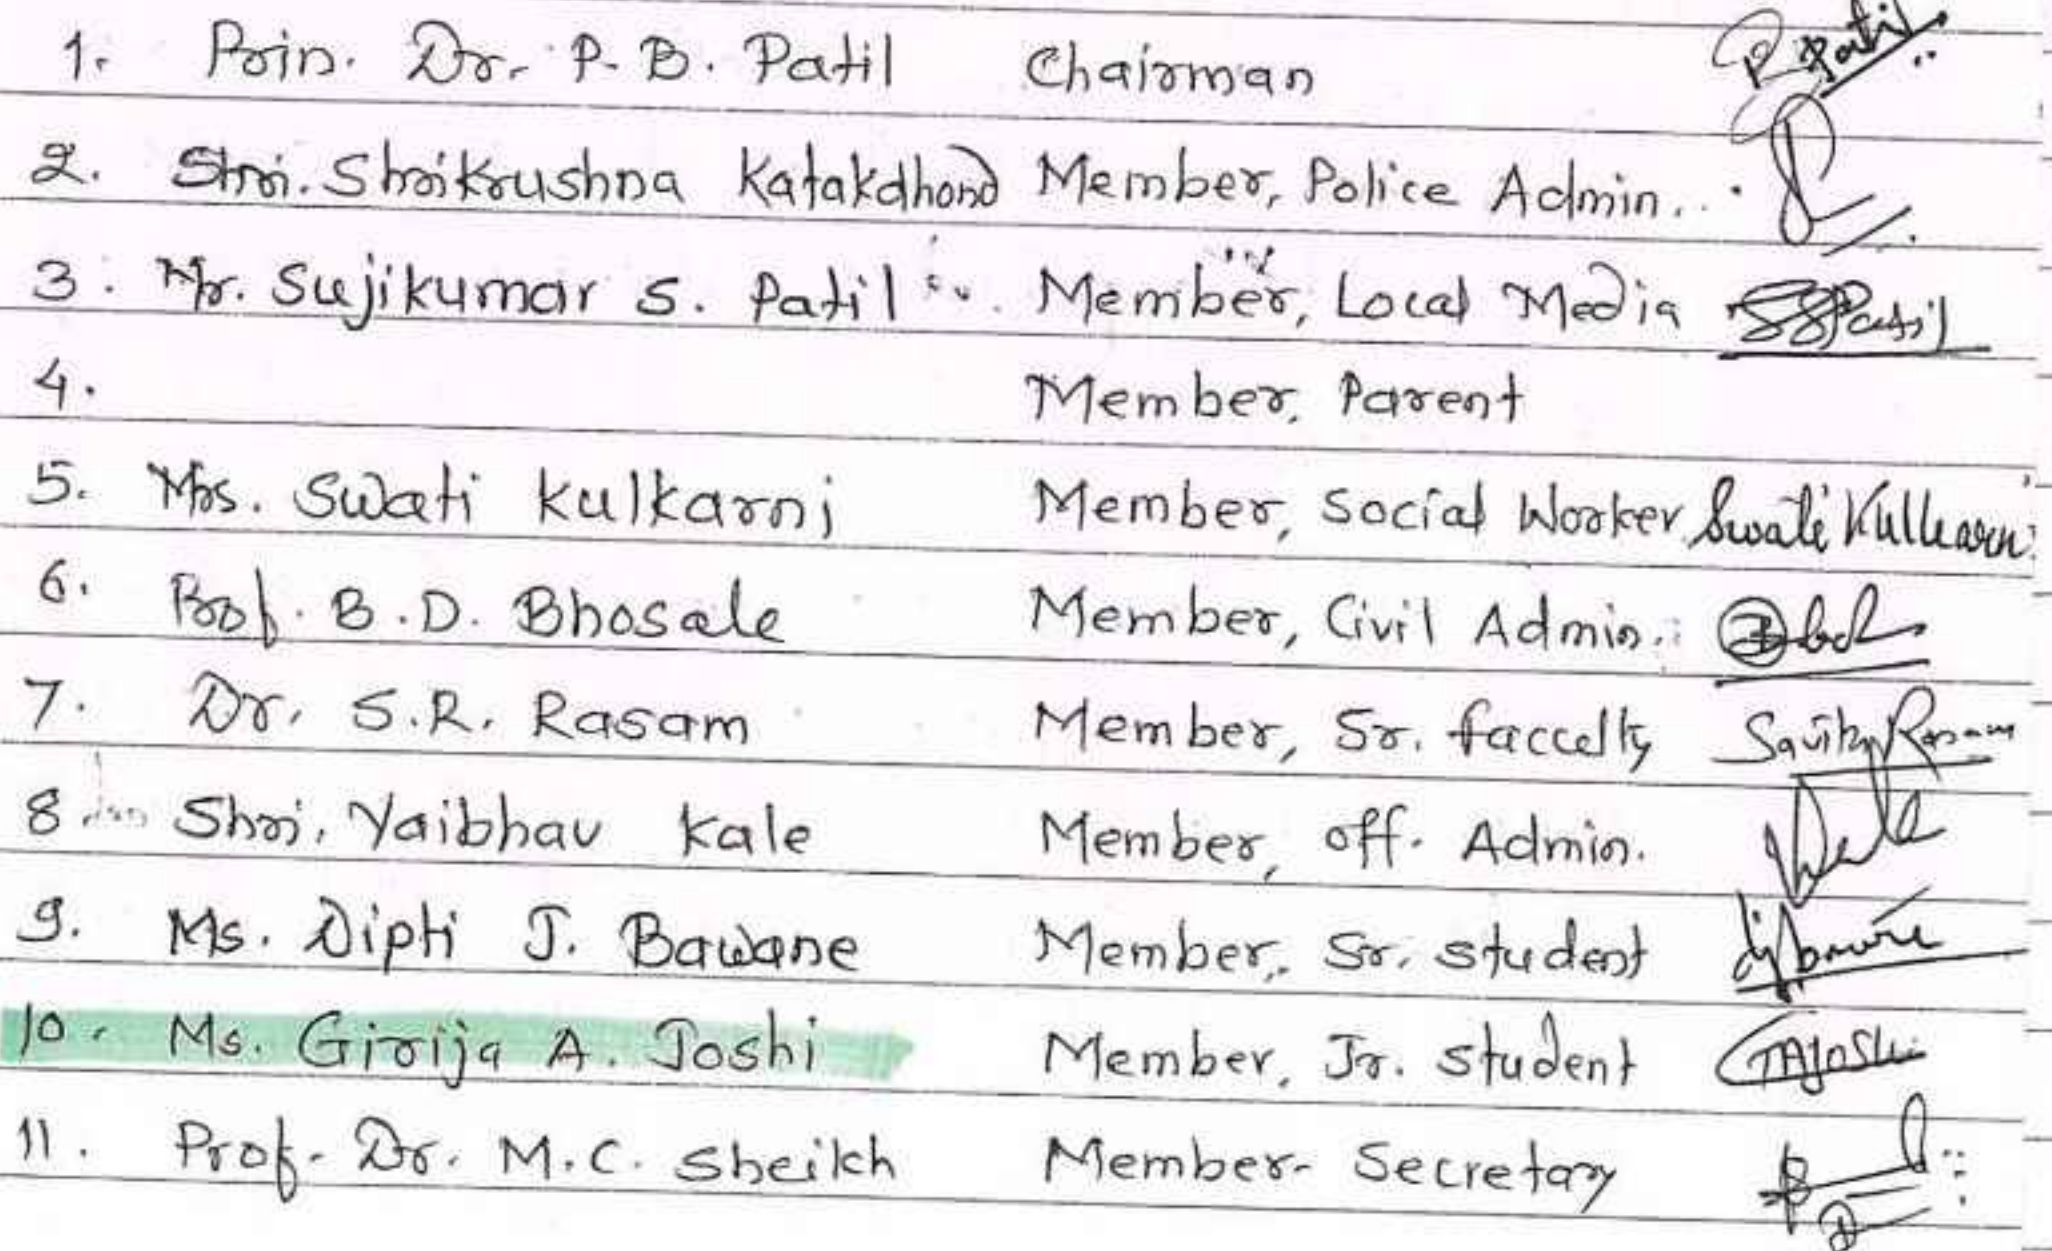 1. Prin. Dr. P. B. Patil Chairman Patil
2. Shri. Shrikrushna Katakdhond Member, Police Admin..
3. Mr. Sujikumar S. Patil Member, Local Media SSPatil
4. Member, Parent
5. Mrs. Swati Kulkarni Member, Social Worker Swati Kulkarni
6. Prof. B.D. Bhosale Member, Civil Admin.
7. Dr. S.R. Rasam Member, Sr. faculty Savita Rasam
8 Shri. Vaibhav Kale Member, off. Admin.
9. Ms. Dipti J. Bawane Member, Sr. student
10. Ms. Girija A. Joshi Member, Jr. student GAJoshi
11. Prof. Dr. M.C. Sheikh Member- Secretary